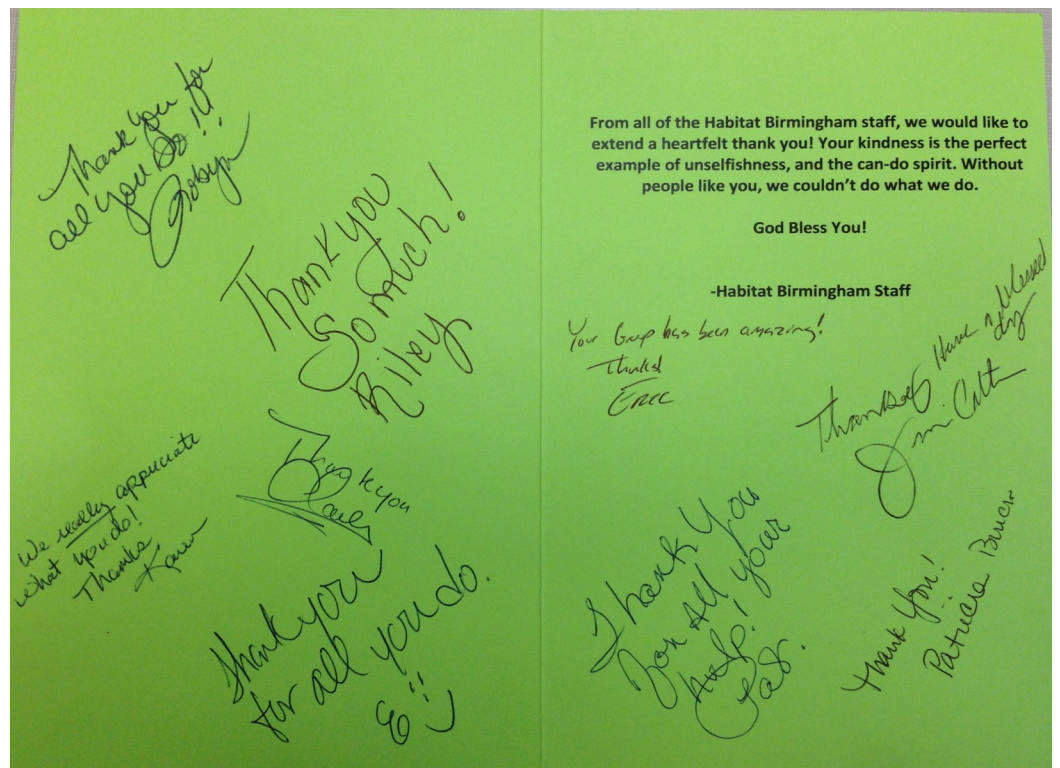 Thank you for
all you do!!
Robyn
Thank you
So much!
Riley
Thank you
We really appreciate
what you do!
Thanks
Karen
Thank you
for all you do.
From all of the Habitat Birmingham staff, we would like to
extend a heartfelt thank you! Your kindness is the perfect
example of unselfishness, and the can-do spirit. Without
people like you, we couldn't do what we do.
God Bless You!
-Habitat Birmingham Staff
Your Group has been amazing!
Thanks!
Eric
Have a blessed
day
Jim
Thank You
For All your
help!
Pat.
Thank You!
Patricia